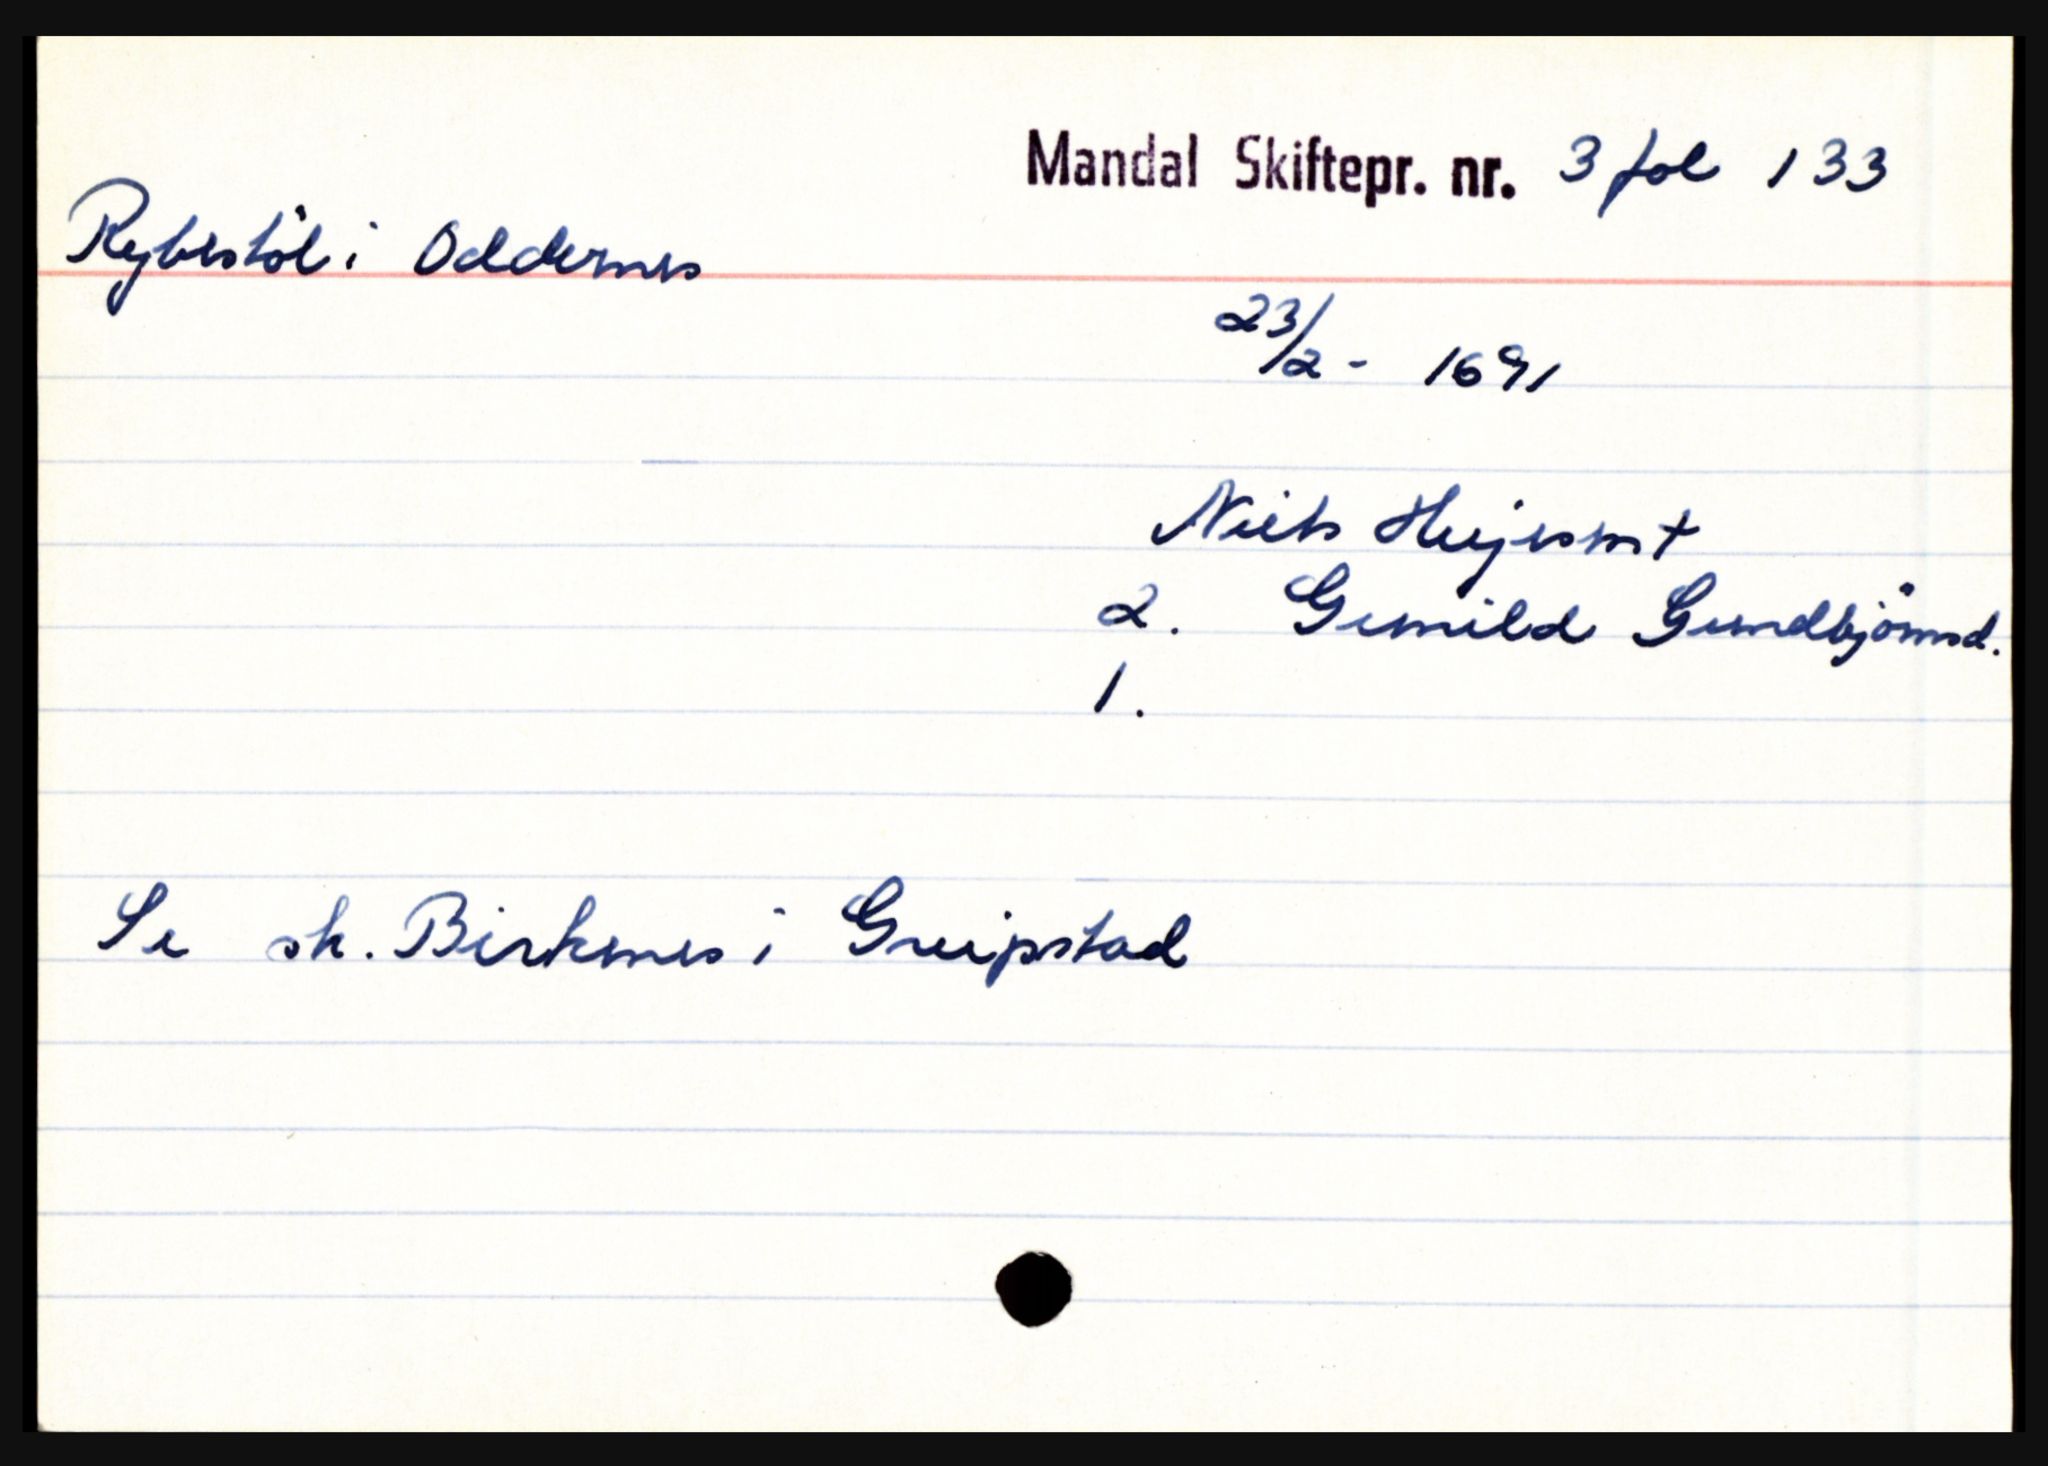 Mandal Skiftepr. nr. 3 fol 133
Rybestöl i Oddernes
23/2 - 1691
Niels †
2. Gunnild Gundbjörnsd.
1.
Se sk. Birkenes i Greipstad